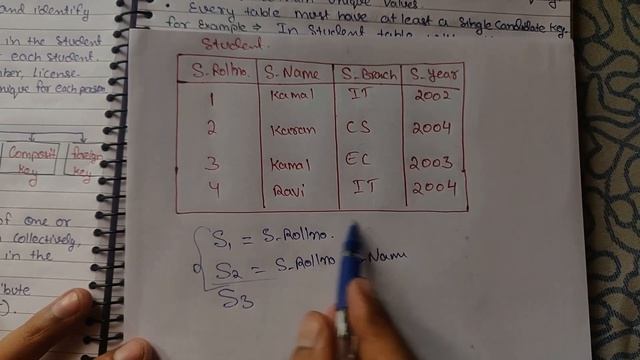 and identify
in the student
each student.
ber, License-
nique for each person
Composit
key
foreign
key
of one or
collectively,
in the
bute
).
unique values.
• Every table must have at least a single candidate key.
for example ⇒ In Student table
Student.
S-Rollno. S-Name S-Branch S-Year
1 Kamal IT 2002
2 Karan CS 2004
3 Kamal EC 2003
4 Ravi IT 2004
S1 = S-Rollno.
S2 = S-Rollno Name
S3